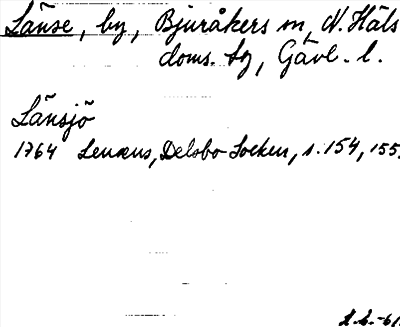 Länse, by, Bjuråkers sn, N. Häls
doms. sg, Gävl. l.
Länsjö
1764 Lenæus, Delsbo Socken, s. 154, 155.
L.L.-61.